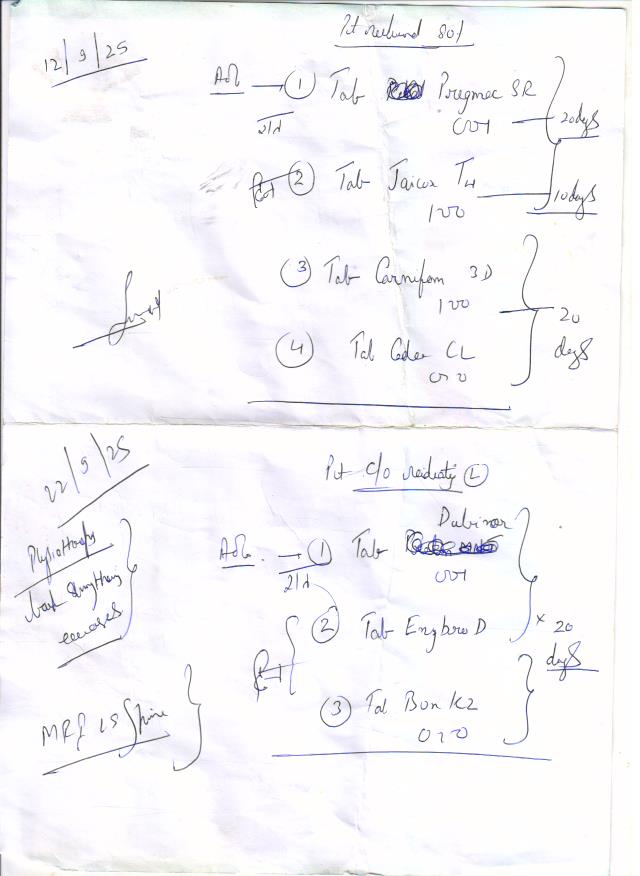 12/9/25
Pt relieved 80%
Adv → ① Tab Pregmec SR
001 — 20 days
21d
② Tab Jaicox T4
100 — 10 days
③ Tab Carnifem 3D
100
20 days
④ Tab Cedex CL
22/9/25
Pt c/o radiating Ⓛ
Physiotherapy
back strengthening
exercises
Dubinor
Adv. → ① Tab
001
21d
② Tab Enzbro D
x 20 days
③ Tab Bon K2
010
MRI LS Spine